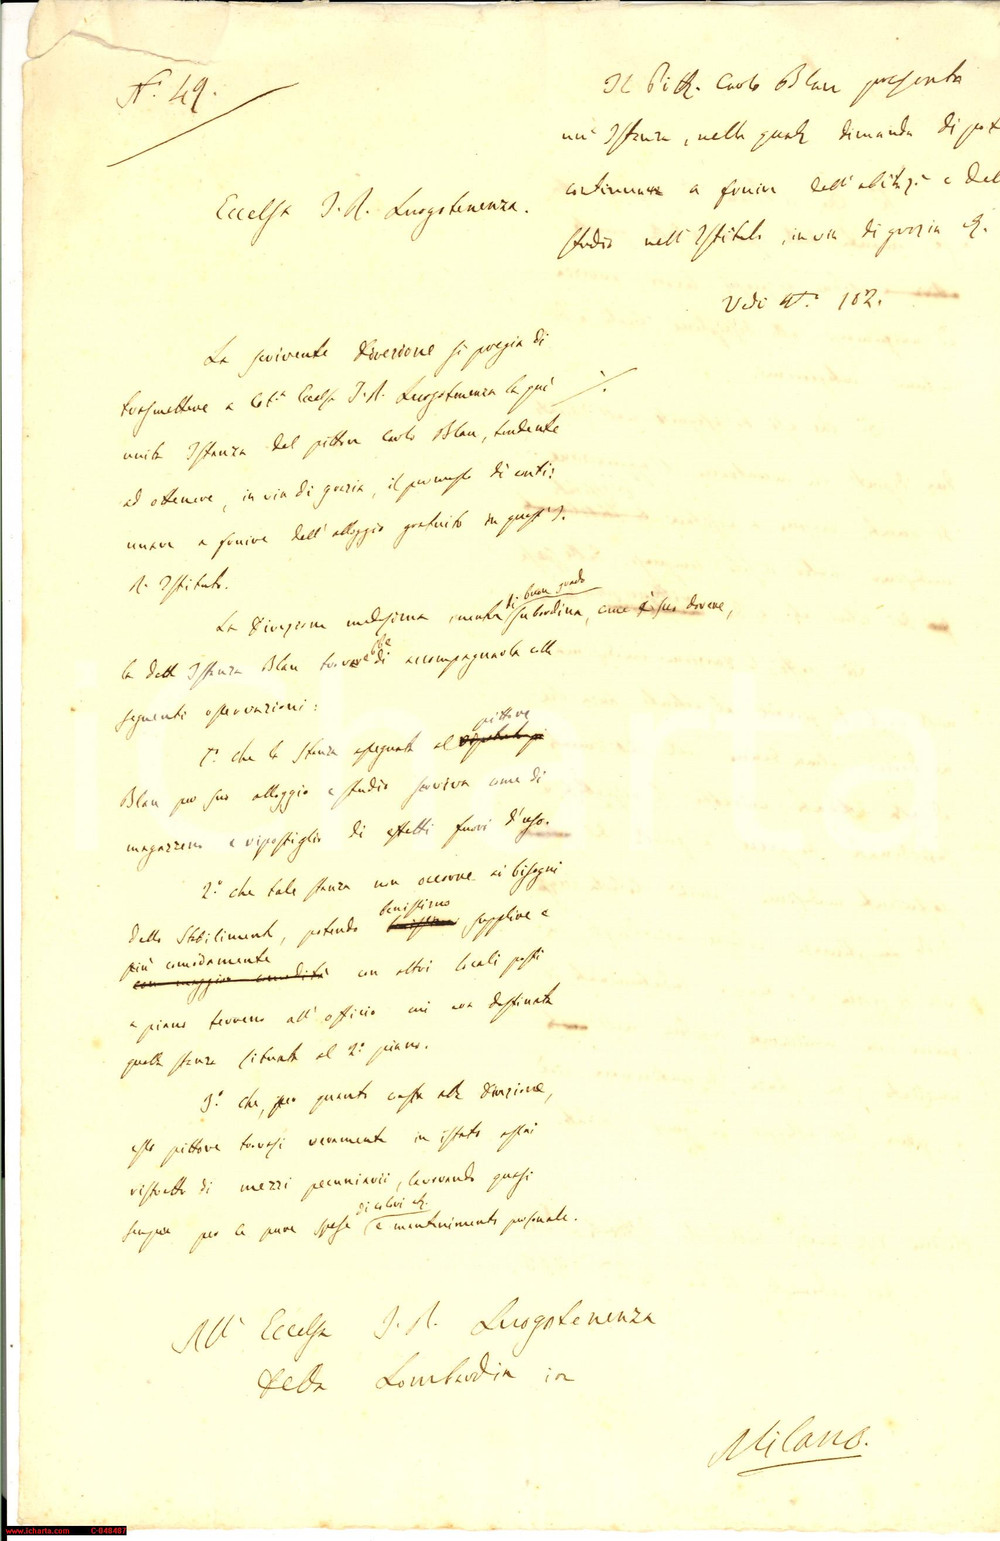 N.° 49.
Il Pitt. Carlo Blau presenta
un' Istanza, nella quale dimanda di pot
continuare a fruire dell'alloggio e del
studio nell'Istituto, in via di grazia
Vedi N.° 102.
Eccelsa I. R. Luogotenenza.
La scrivente Direzione si pregia di
trasmettere a Cot.a Eccelsa I. R. Luogotenenza la qui
unita Istanza del pittore Carlo Blau, tendente
ad ottenere, in via di grazia, il permesso di conti-
nuare a fruire dell'alloggio gratuito in quest' I.
R. Istituto.
La Direzione medesima, mentre di buon grado subordina, come è suo dovere,
la detta Istanza Blau, di accompagnarla colle
seguenti osservazioni:
1.° che la stanza assegnata al pittore
Blau per suo alloggio e studio serviva come di
magazzeno e ripostiglio di effetti fuori d'uso.
2.° che tale stanza non occorre ai bisogni
dello Stabilimento, potendo benissimo supplire e
più comodamente
con maggior comodità con altri locali posti
a piano terreno all'officio cui era destinata
quella stanza situata al 2.° piano.
3.° che, per quanto consta alla Direzione,
esso pittore trovasi veramente in istato assai
ristretto di mezzi pecuniarii, lavorando quasi
sempre per le pure spese di colori e mantenimento personale.
All' Eccelsa I. R. Luogotenenza
della Lombardia in
Milano.
www.icharta.com C-848487